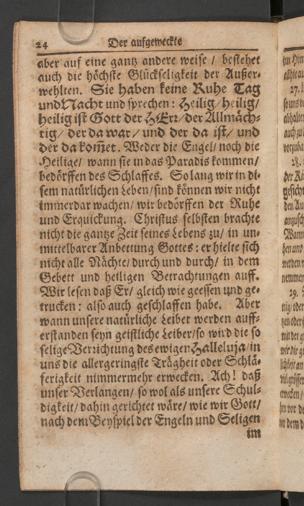 24 Der aufgeweckte
aber auf eine gantz andere weise / bestehet
auch die höchste Glückseligkeit der Außer-
wehlten. Sie haben keine Ruhe Tag
und Nacht und sprechen: Heilig / heilig /
heilig ist Gott der HErr / der Allmäch-
tig / der da war / und der da ist / und
der da kom̃et. Weder die Engel / noch die
Heilige / wann sie in das Paradis kommen /
bedörffen des Schlaffes. So lang wir in di-
sem natürlichen Leben / sind können wir nicht
immerdar wachen / wir bedörffen der Ruhe
und Erquickung. Christus selbsten brachte
nicht die gantze Zeit seines Lebens zu / in un-
mittelbarer Anbettung Gottes: er hielte sich
nicht alle Nächte / durch und durch / in dem
Gebett und heiligen Betrachtungen auff.
Wir lesen daß Er / gleich wie geessen und ge-
trucken: also auch geschlaffen habe. Aber
wann unsere natürliche Leiber werden auff-
erstanden seyn geistliche Leiber / so wird die so
selige Verrichtung des ewigen Halleluja / in
uns die allergeringste Trägheit oder Schlä-
ferigkeit nimmermehr erwecken. Ach! daß
unser Verlangen / so wol als unsere Schul-
digkeit / dahin gerichtet wäre / wie wir Gott /
nach dem Beyspiel der Engeln und Seligen
im